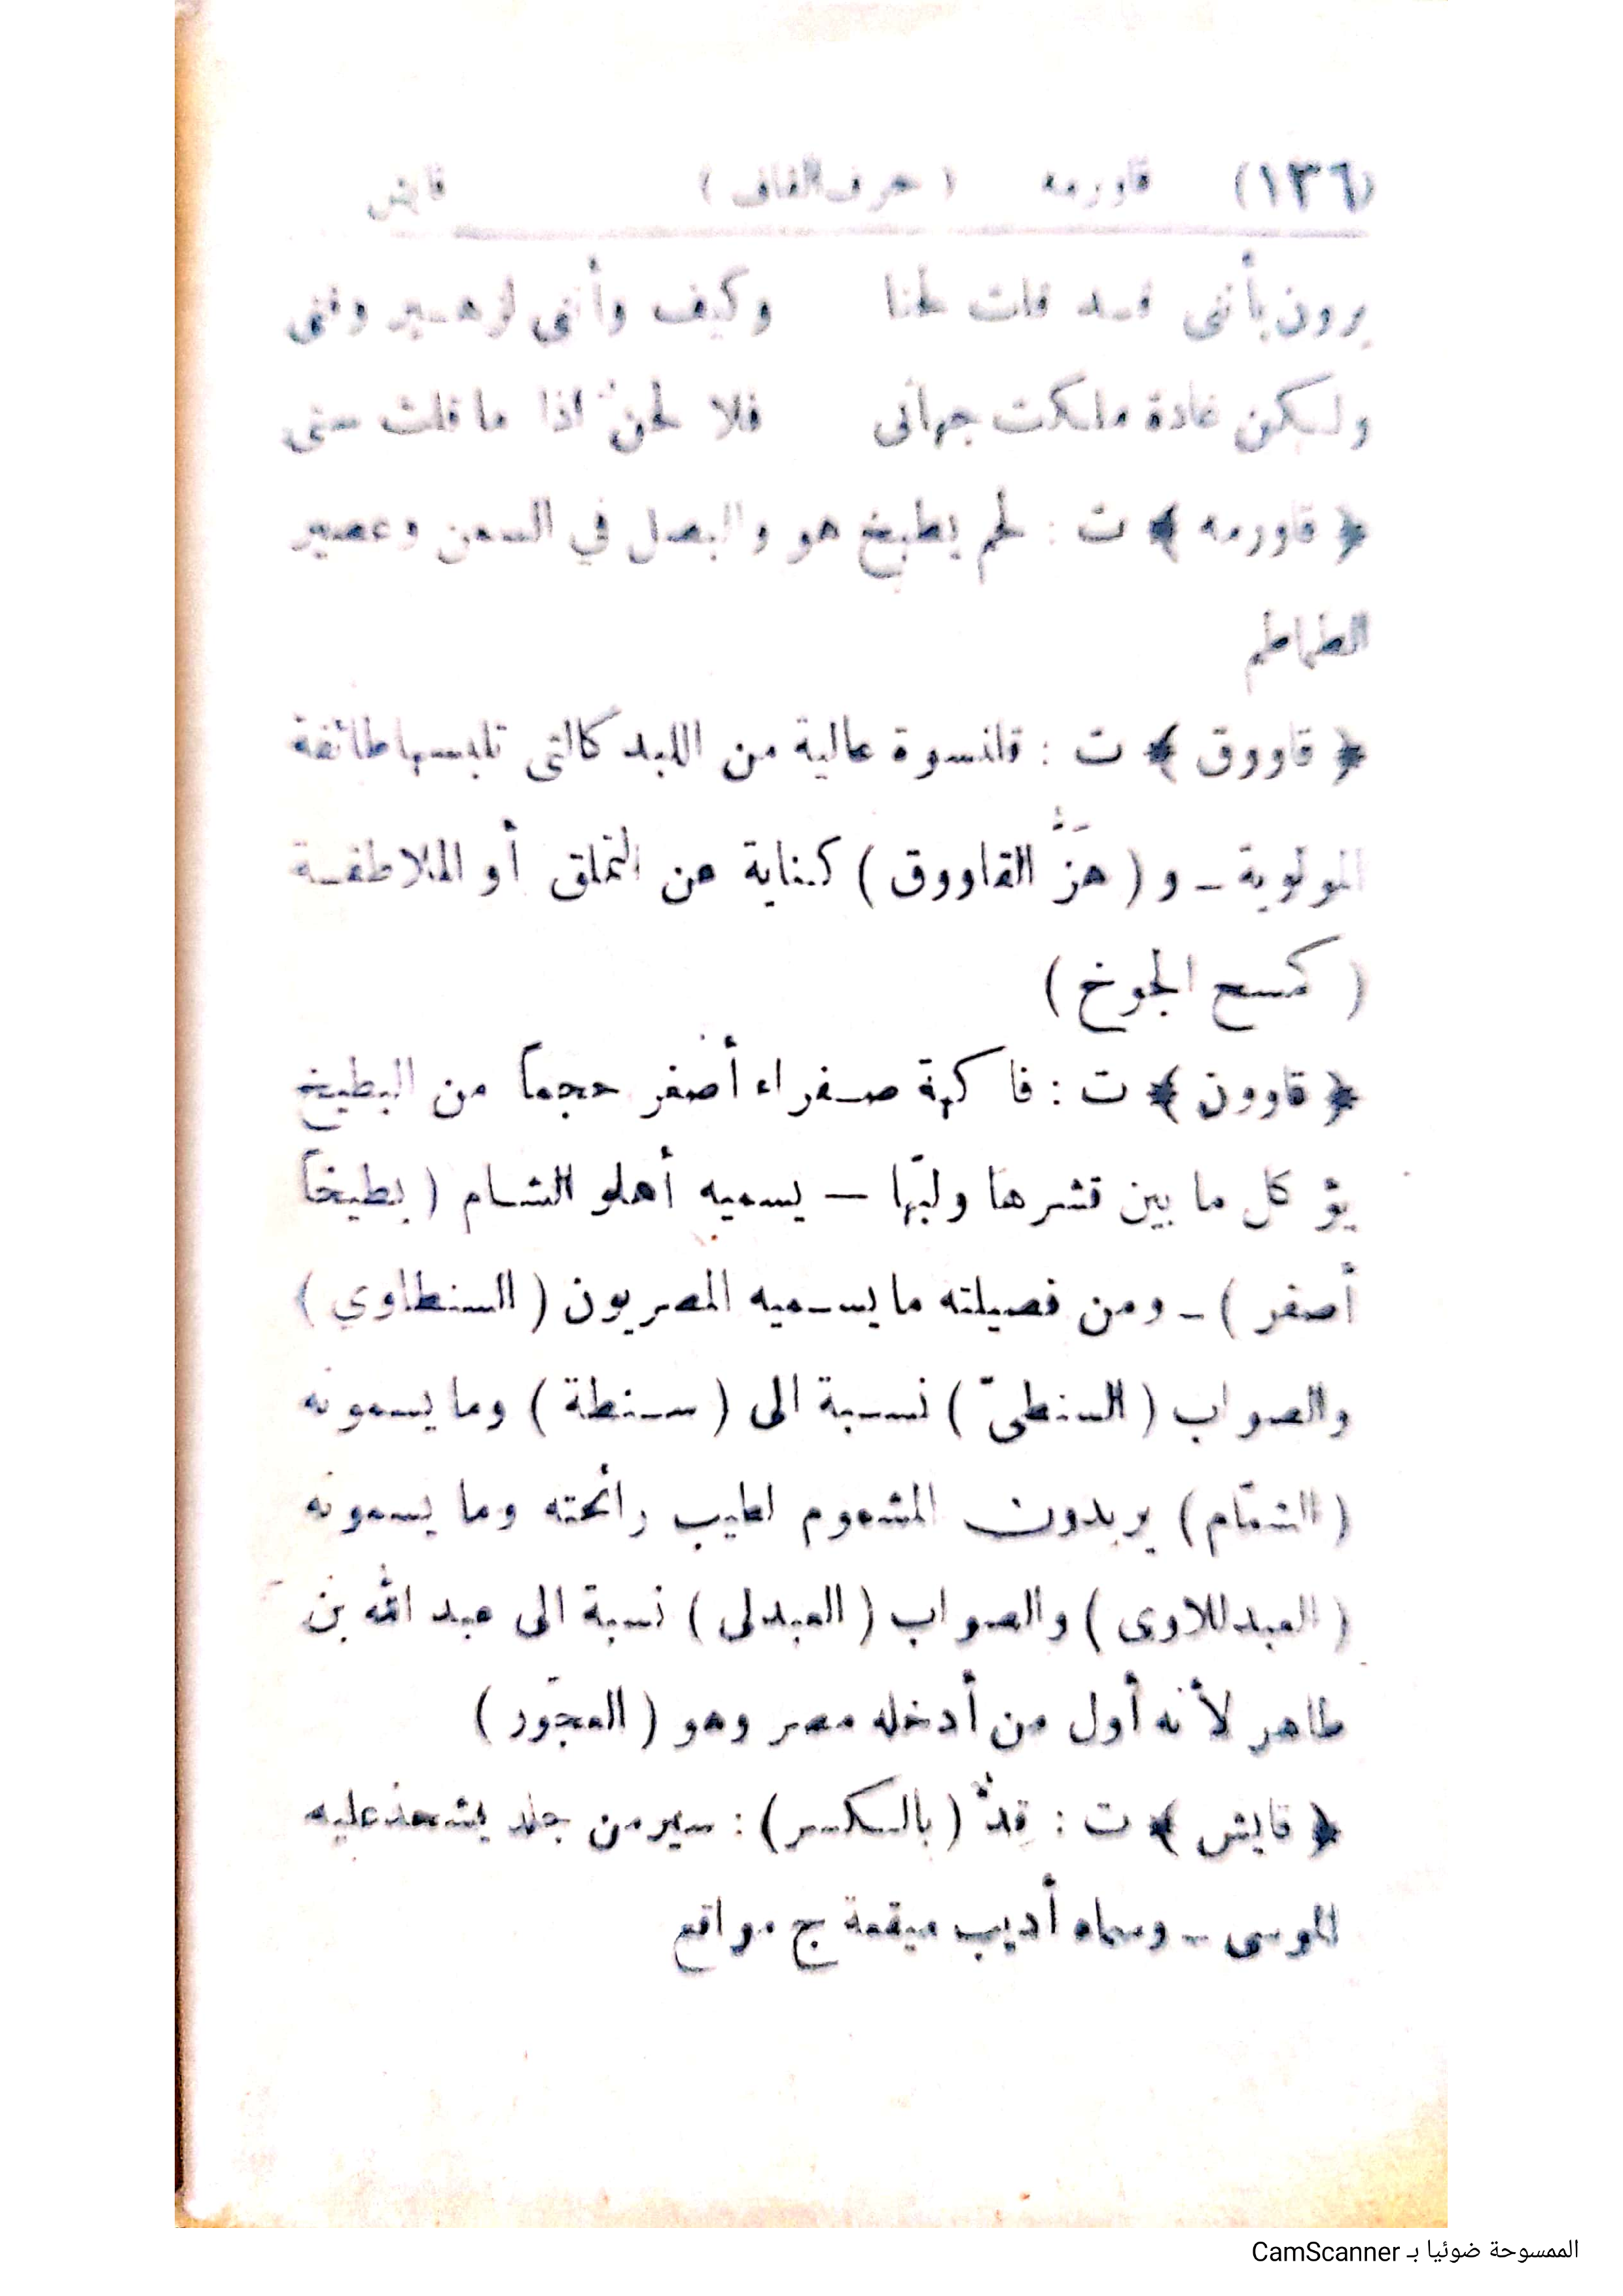 (١٣٦) قاورمه ( حرف القاف ) قايش
يرون بأننى قد قلت لحنا وكيف وأننى لزهير وقتى
ولكن غادة ملكت جهاتى فلا لحنٌ اذا ما قلت ستى
﴿ قاورمه ﴾ ت : لحم يطبخ هو والبصل في السمن وعصير
الطماطم
﴿ قاووق ﴾ ت : قلنسوة عالية من اللبد كالتى تلبسها طائفة
المولوية ـ و ( هَزُّ القاووق ) كناية عن التملق أو الملاطفة
( كمسح الجوخ )
﴿ قاوون ﴾ ت : فاكهة صفراء أصغر حجماً من البطيخ
يؤكل ما بين قشرها ولبّها — يسميه أهلو الشام ( بطيخاً
أصفر ) ـ ومن فصيلته ما يسميه المصريون ( السنطاوي )
والصواب ( السنطىّ ) نسبة الى ( سنطة ) وما يسمونه
( الشمّام ) يريدون المشموم لطيب رائحته وما يسمونه
( العبدللاوى ) والصواب ( العبدلى ) نسبة الى عبد الله بن
طاهر لأنه أول من أدخله مصر وهو ( العجّور )
﴿ قايش ﴾ ت : قِدٌّ ( بالكسر ) : سير من جلد يشحذ عليه
الموسى ـ وسماه أديب ميقعة ج مواقع
الممسوحة ضوئيا بـ CamScanner